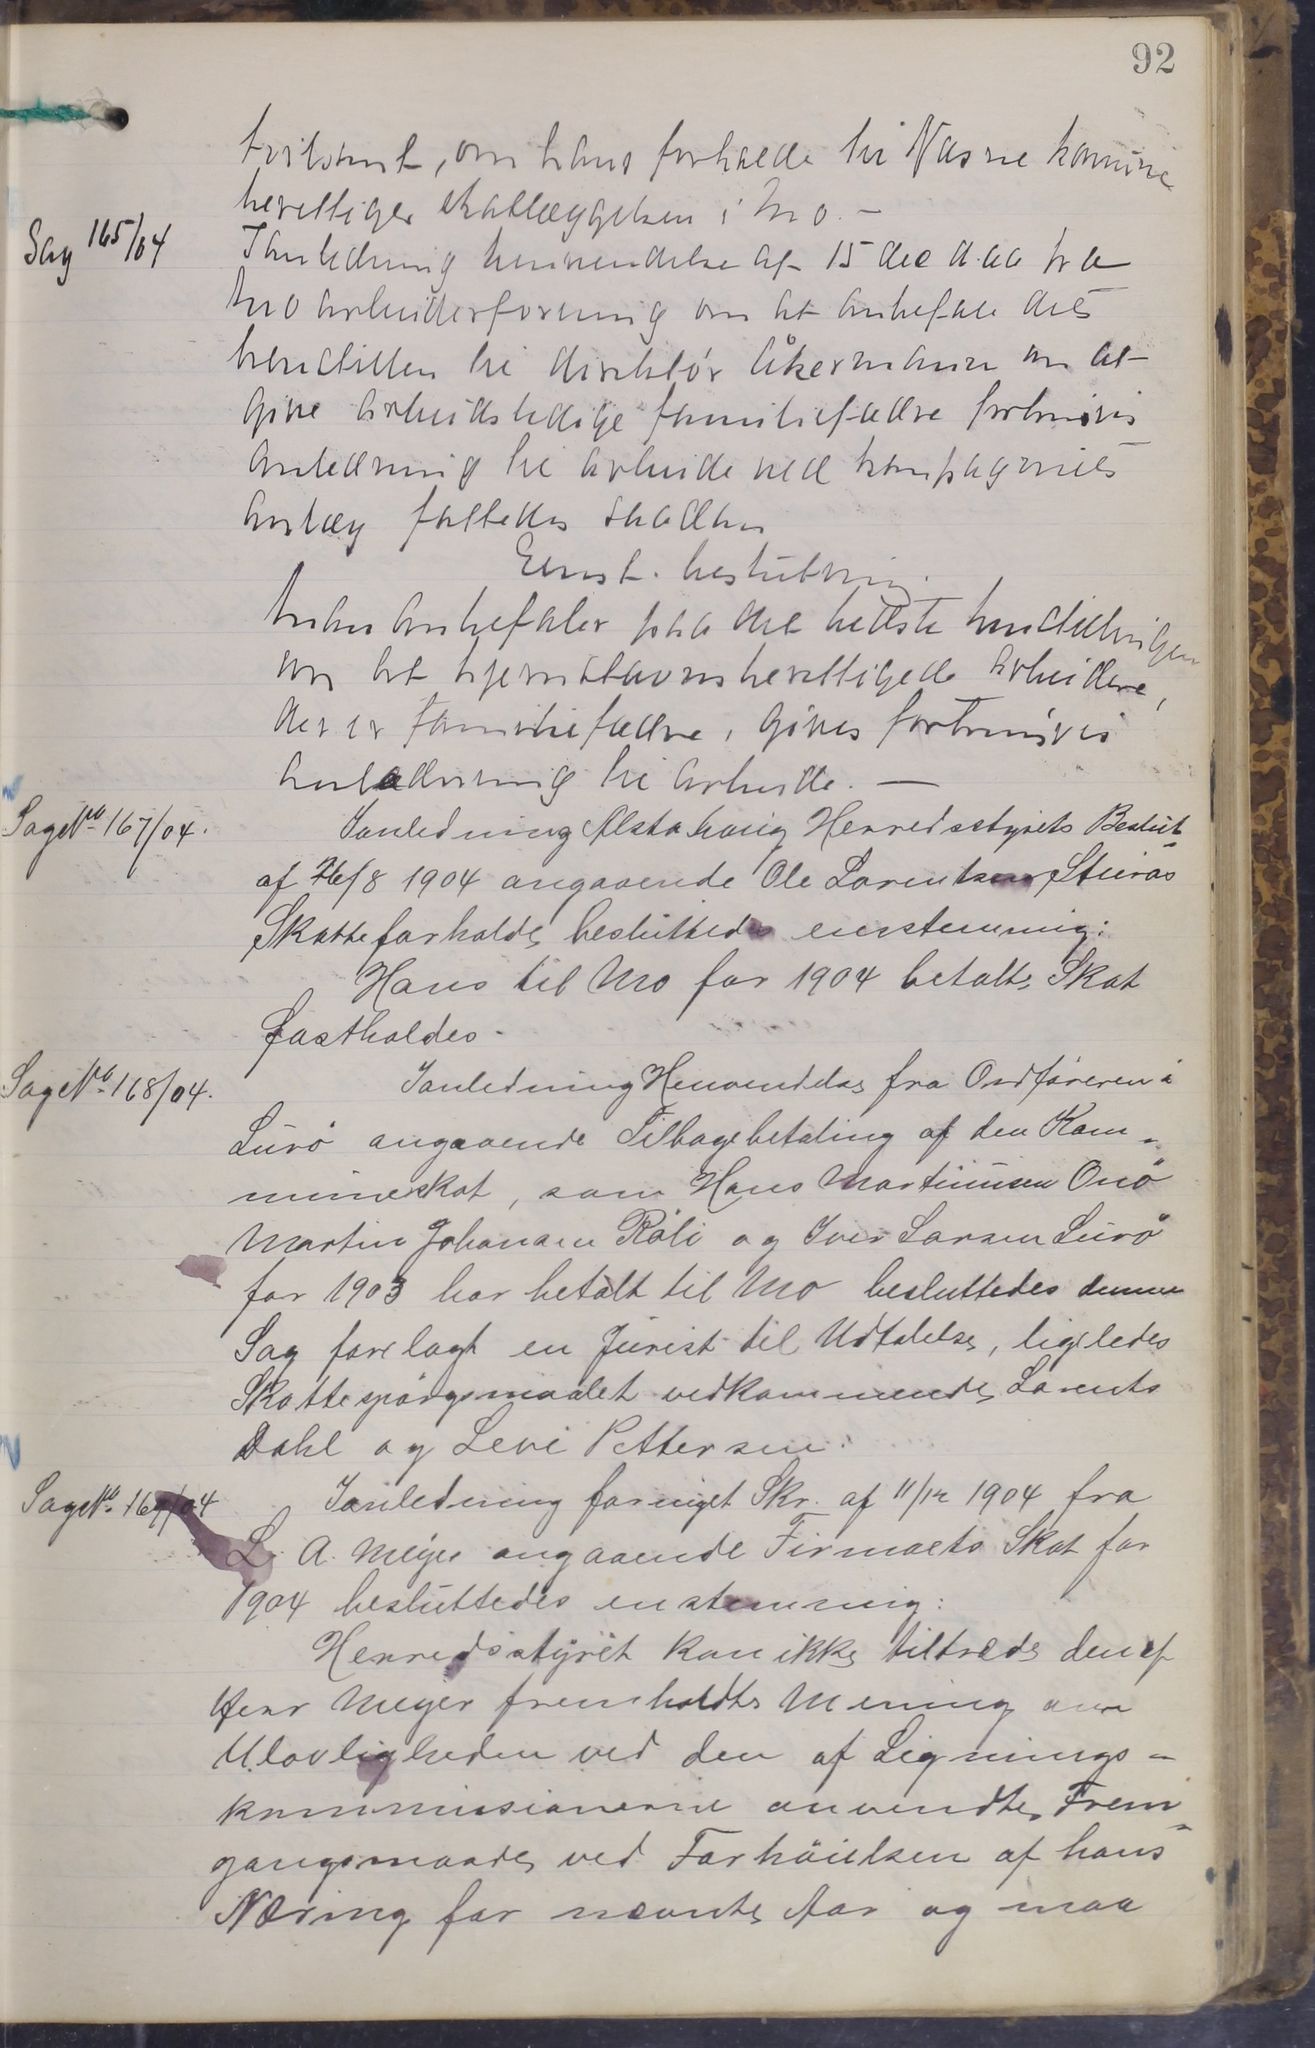 92
tvilsomt, om hans forholde til Næsne kommune
berettiger skatlæggelsen i Mo. —
Sag 165/04
I anledning henvendelse af 15 dec d.aa fra
Mo arbeiderforening om at anbefale dets
henstillen til direktør Åkermann om at
give arbeidsledige familiefædre fortrinsvis
anledning til arbeide ved kompagniets
anlæg fattedes saadan
Enst. beslutning.
Man anbefaler paa det bedste henstillingen
om at hjemstavnsberettigede arbeidere,
der er familiefædre, gives fortrinsvis
anledning til arbeide. —
Sag No 167/04.
I anledning Alstahaug Herredsstyrets Beslut
af 26/8 1904 angaaende Ole Lorentsens, Stuvøs
Skatteforholde besluttedes enstemmig:
Hans til Mo for 1904 betalte Skat
fastholdes.
Sag No 168/04.
I anledning Henvendelse fra Ordføreren i
Lurø angaaende Tilbagebetaling af den Kom-
muneskat, som Hans Martinusen Onø
Martin Johansen Røli og Iver Larsen Lurø
for 1903 har betalt til Mo besluttedes denne
Sag forelagt en Jurist til Udtalelse, ligeledes
Skattespørgsmaalet vedkommende Lorents
Dahl og Levi Pettersen.
Sag No 169/04
I anledning fornyet Skr. af 11/12 1904 fra
L. A. Meyer angaaende Firmaets Skat for
1904 besluttedes enstemmig:
Herredsstyret kan ikke tiltræde den af
Herr Meyer fremholdte Mening om
Ulovligheden ved den af Lignings-
kommissionerne anvendte Frem-
gangsmaade ved Forhøielsen af hans
Næring for nævnte Aar og maa